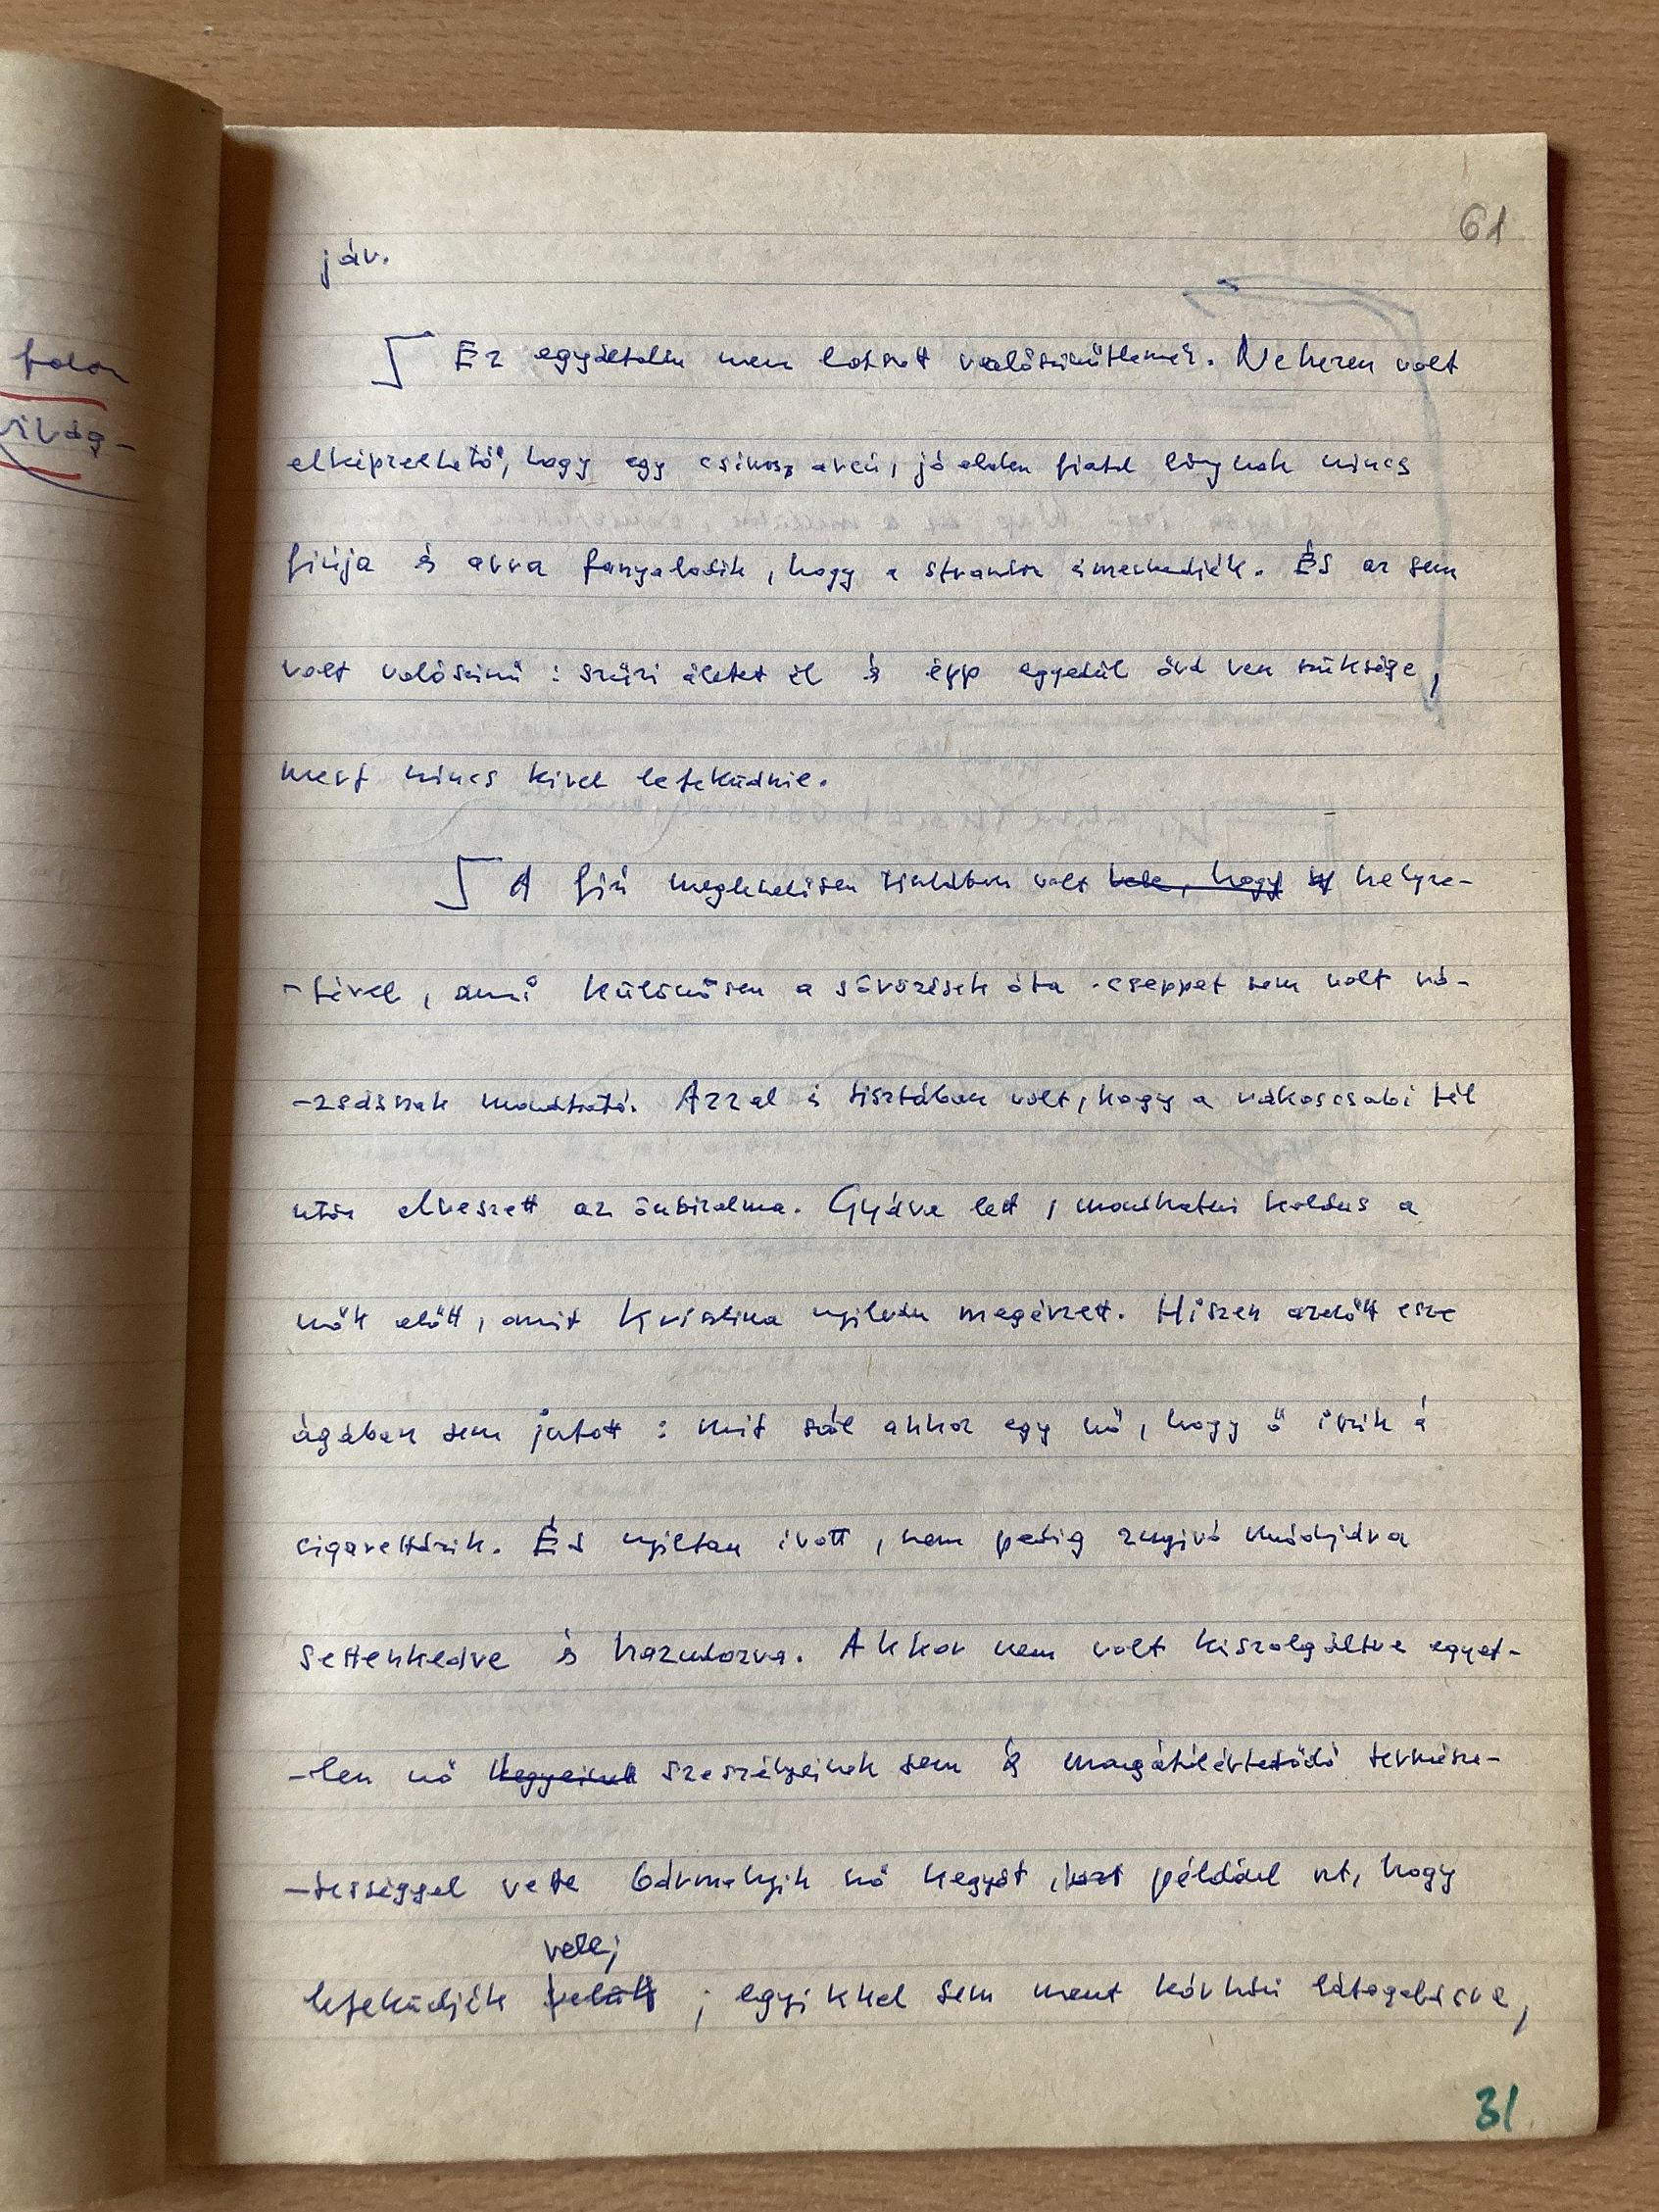 61
jáv.
Ez egyáltalán nem látszott valószínűtlennek. Nehezen volt
elképzelhető, hogy egy csinos, arcú, jó fiatal lánynak nincs
fiúja és arra fanyalodik, hogy a strandon ismerkedjék. És az sem
volt valószínű: szűzi életet él és épp egyedül óvá van szüksége,
mert nincs kivel lefeküdnie.
A fiú meglehetősen tisztában volt vele, hogy helyze-
-tével, ami különösen a sörözések óta cseppet sem volt ró-
-zsásnak mondható. Azzal is tisztában volt, hogy a rákoscsabai tél
után elveszett az önbizalma. Gyáva lett, mondhatni koldus a
nők előtt, amit Krisztina nyilván megérzett. Hiszen azelőtt esze
ágában sem jutott: mit szól ahhoz egy nő, hogy ő iszik és
cigarettázik. És nyíltan ivott, nem pedig zugivó módjára
settenkedve és hazudozva. Akkor nem volt kiszolgáltatva egyet-
-len nő kegyeinek szeszélyeinek sem és magátólértetődő természe-
-tességgel vette bármelyik nő kegyét, azt például azt, hogy
vele;
lefeküdjék velük; egyikkel sem ment kórházi látogatásra,
31
folon
világ-